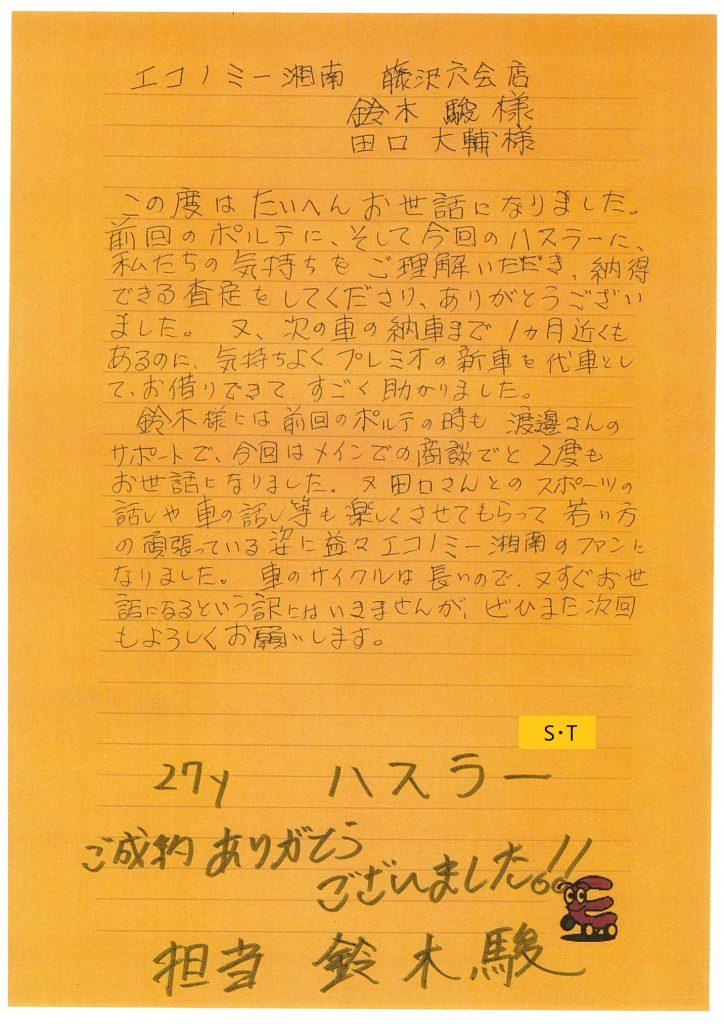 エコノミー湘南 藤沢六会店
鈴木 駿様
田口 大輔様
この度は たいへん お世話になりました。
前回のポルテに、そして今回のハスラーに、
私たちの気持ちを ご理解いただき、納得
できる査定をしてくださり、ありがとうござい
ました。 又、次の車の納車まで 1ヵ月近くも
あるのに、気持ちよく プレミオの新車を代車とし
て、お借りできて すごく助かりました。
鈴木様には 前回のポルテの時も 渡邊さんの
サポートで、今回はメインでの商談でと 2度も
お世話になりました。又 田口さんとの スポーツの
話しや 車の話し等も 楽しくさせてもらって 若い方
の頑張っている 姿に益々エコノミー湘南のファンに
なりました。 車のサイクルは 長いので、又すぐお世
話になるという訳にはいきませんが、ぜひまた次回
もよろしくお願いします。
S・T
27y ハスラー
ご成約 ありがとう
ございました!!
担当 鈴木駿